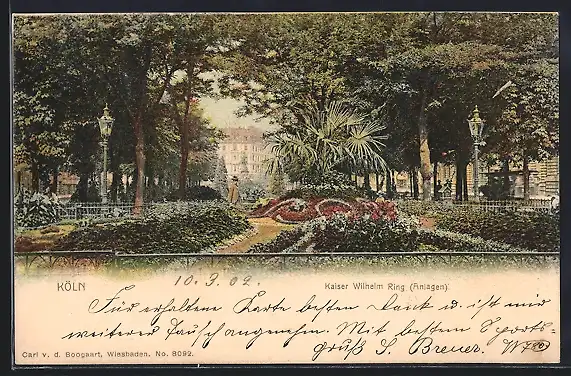 KÖLN
10.3.02.
Kaiser Wilhelm Ring (Anlagen)
Für erhaltene Karte besten Dank u. ist mir
weiterer Tausch angenehm. Mit bestem Sports-
gruß S. Breuer.
Carl v. d. Boogaart, Wiesbaden, No. 8092.